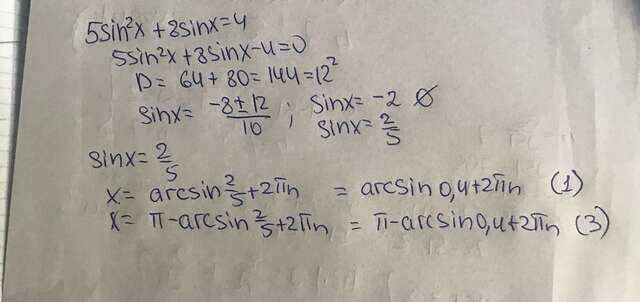 5sin²x + 8sinx = 4
5sin²x + 8sinx - 4 = 0
D = 64 + 80 = 144 = 12²
sinx = (-8 ± 12)/10 ; sinx = -2 ∅
sinx = 2/5
sinx = 2/5
x = arcsin 2/5 + 2πn = arcsin 0,4 + 2πn (1)
x = π - arcsin 2/5 + 2πn = π - arcsin 0,4 + 2πn (3)